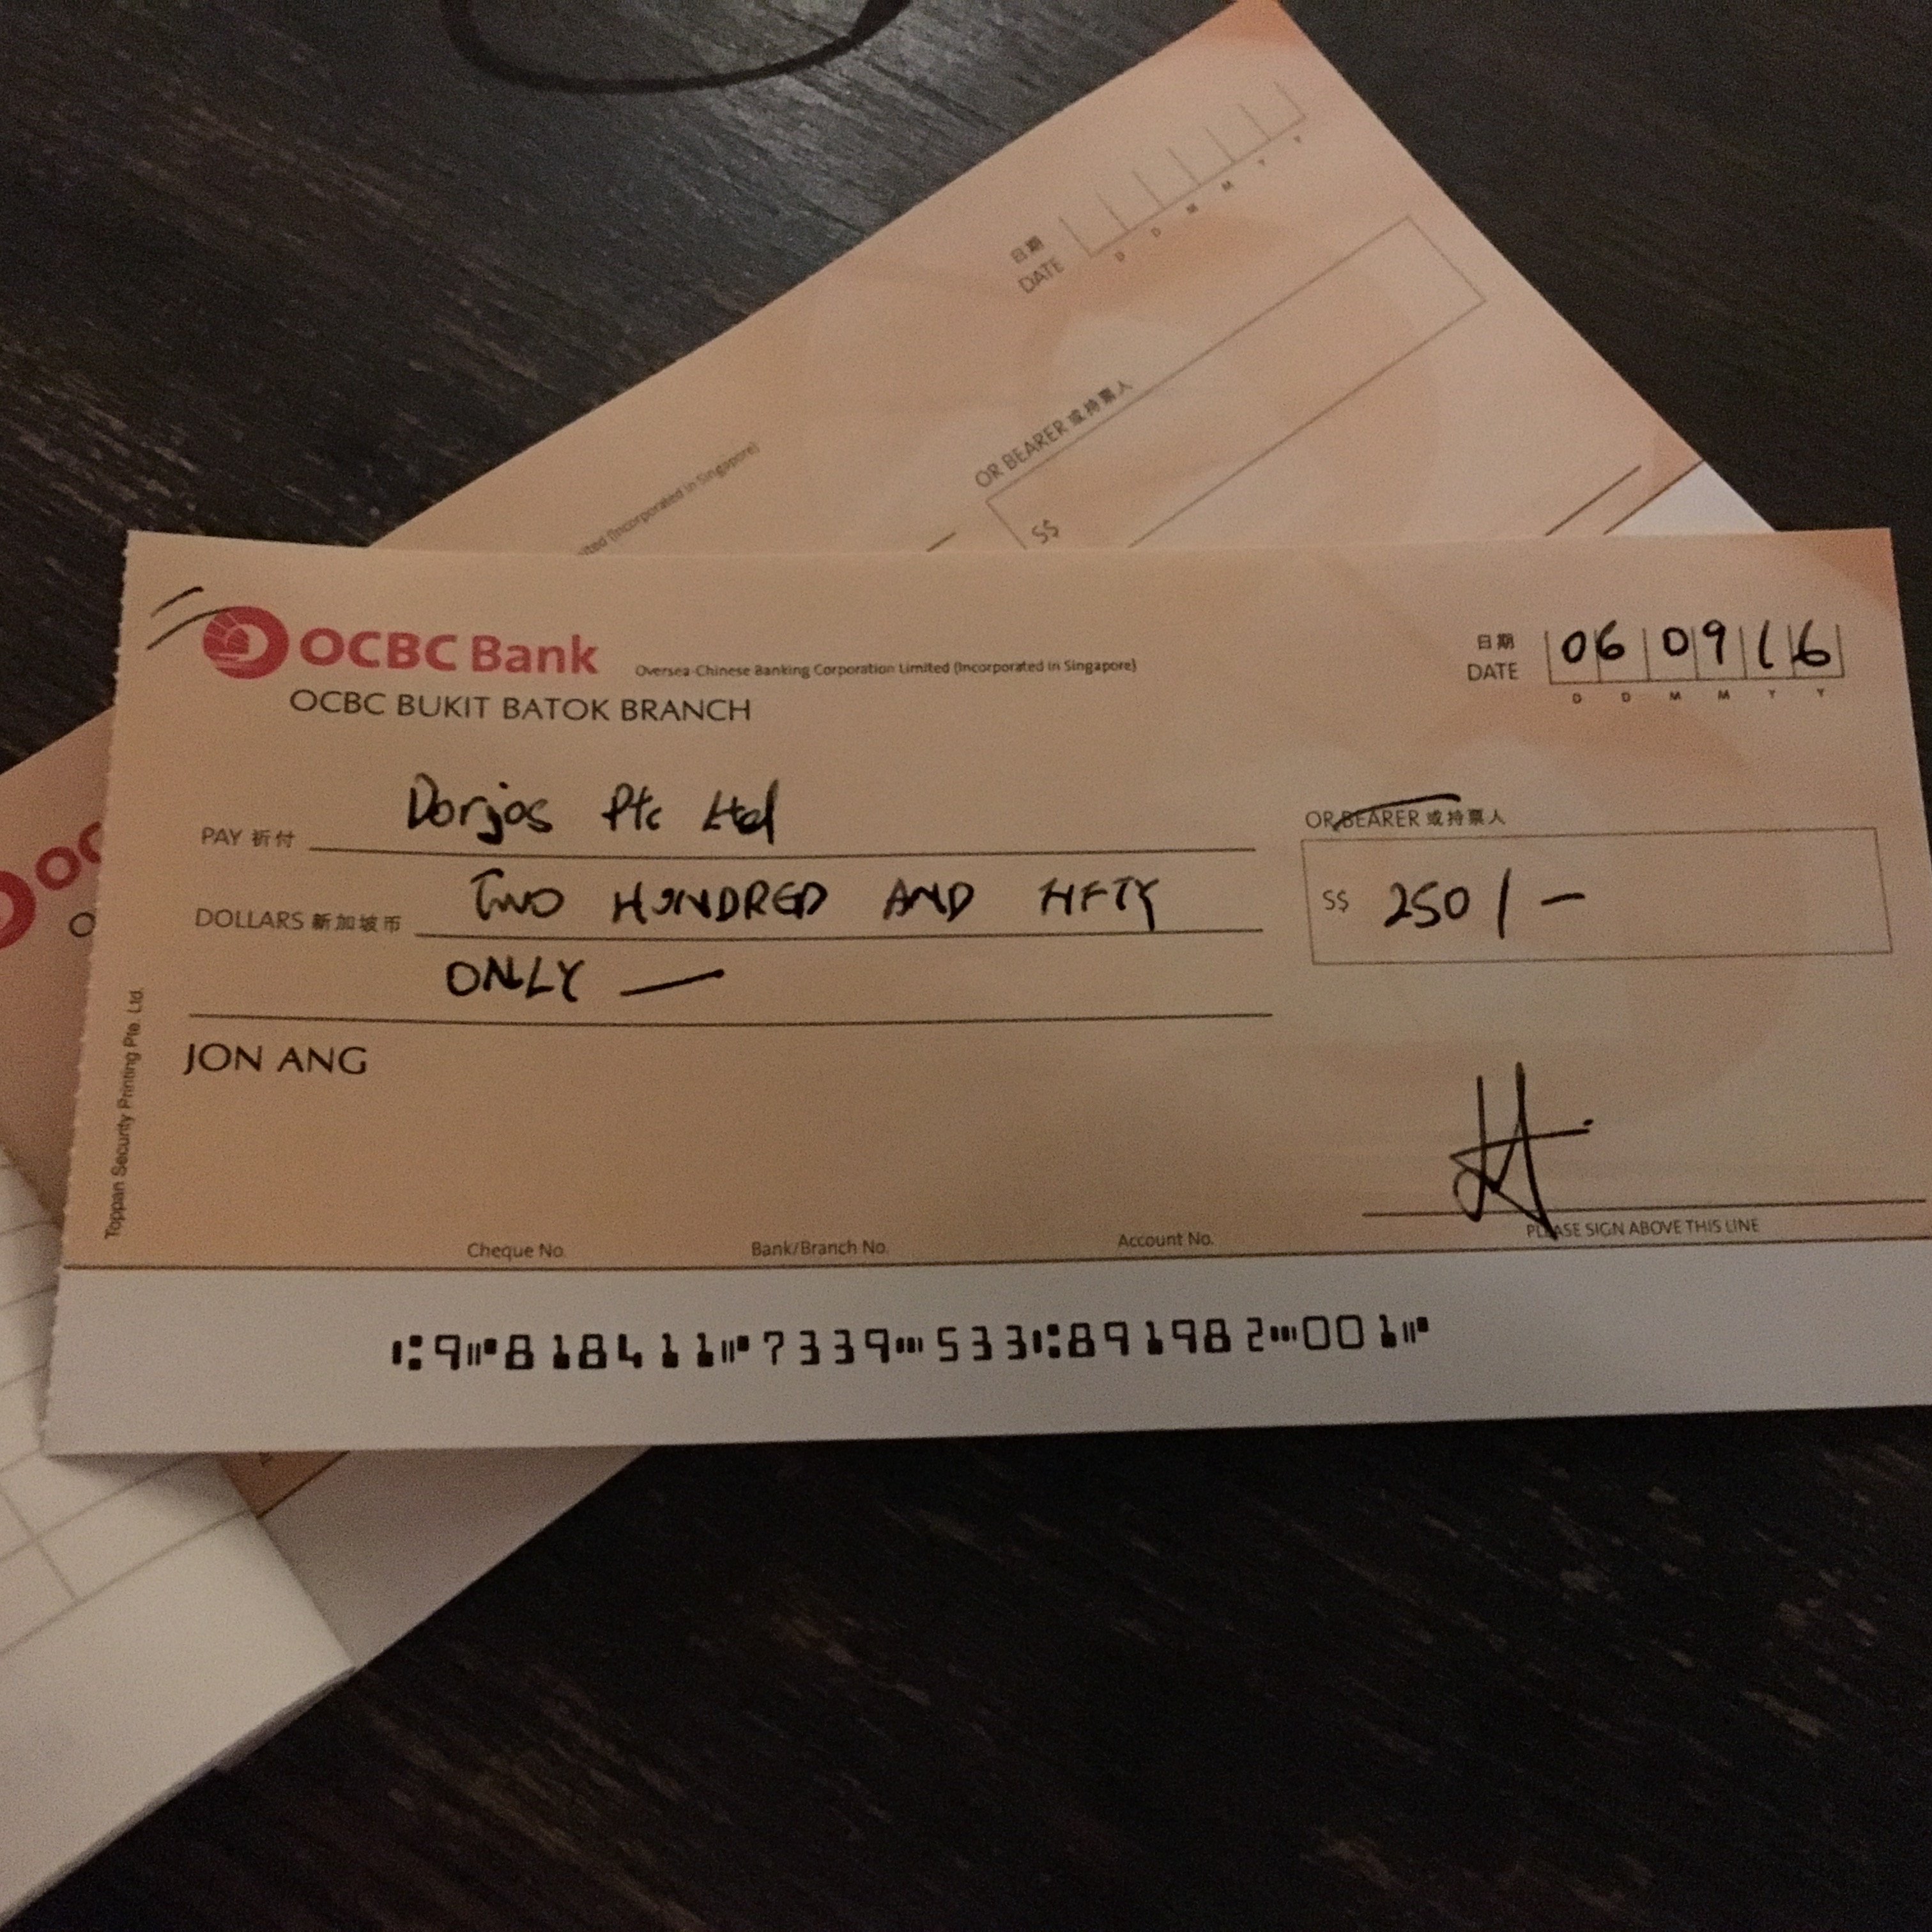 日期
DATE
D D M M Y Y
OR BEARER 或持票人
S$
ited (Incorporated in Singapore)
OCBC Bank
Oversea-Chinese Banking Corporation Limited (Incorporated in Singapore)
OCBC BUKIT BATOK BRANCH
日期
DATE 06 09 16
D D M M Y Y
PAY 祈付 Dorjos Pte Ltd
OR BEARER 或持票人
DOLLARS 新加坡币 TWO HUNDRED AND FIFTY
S$ 250/-
ONLY —
JON ANG
Toppan Security Printing Pte. Ltd.
Cheque No. Bank/Branch No. Account No.
PLEASE SIGN ABOVE THIS LINE
⑆9⑈818411⑈7339⑉533⑆891982⑉001⑈
OC
O